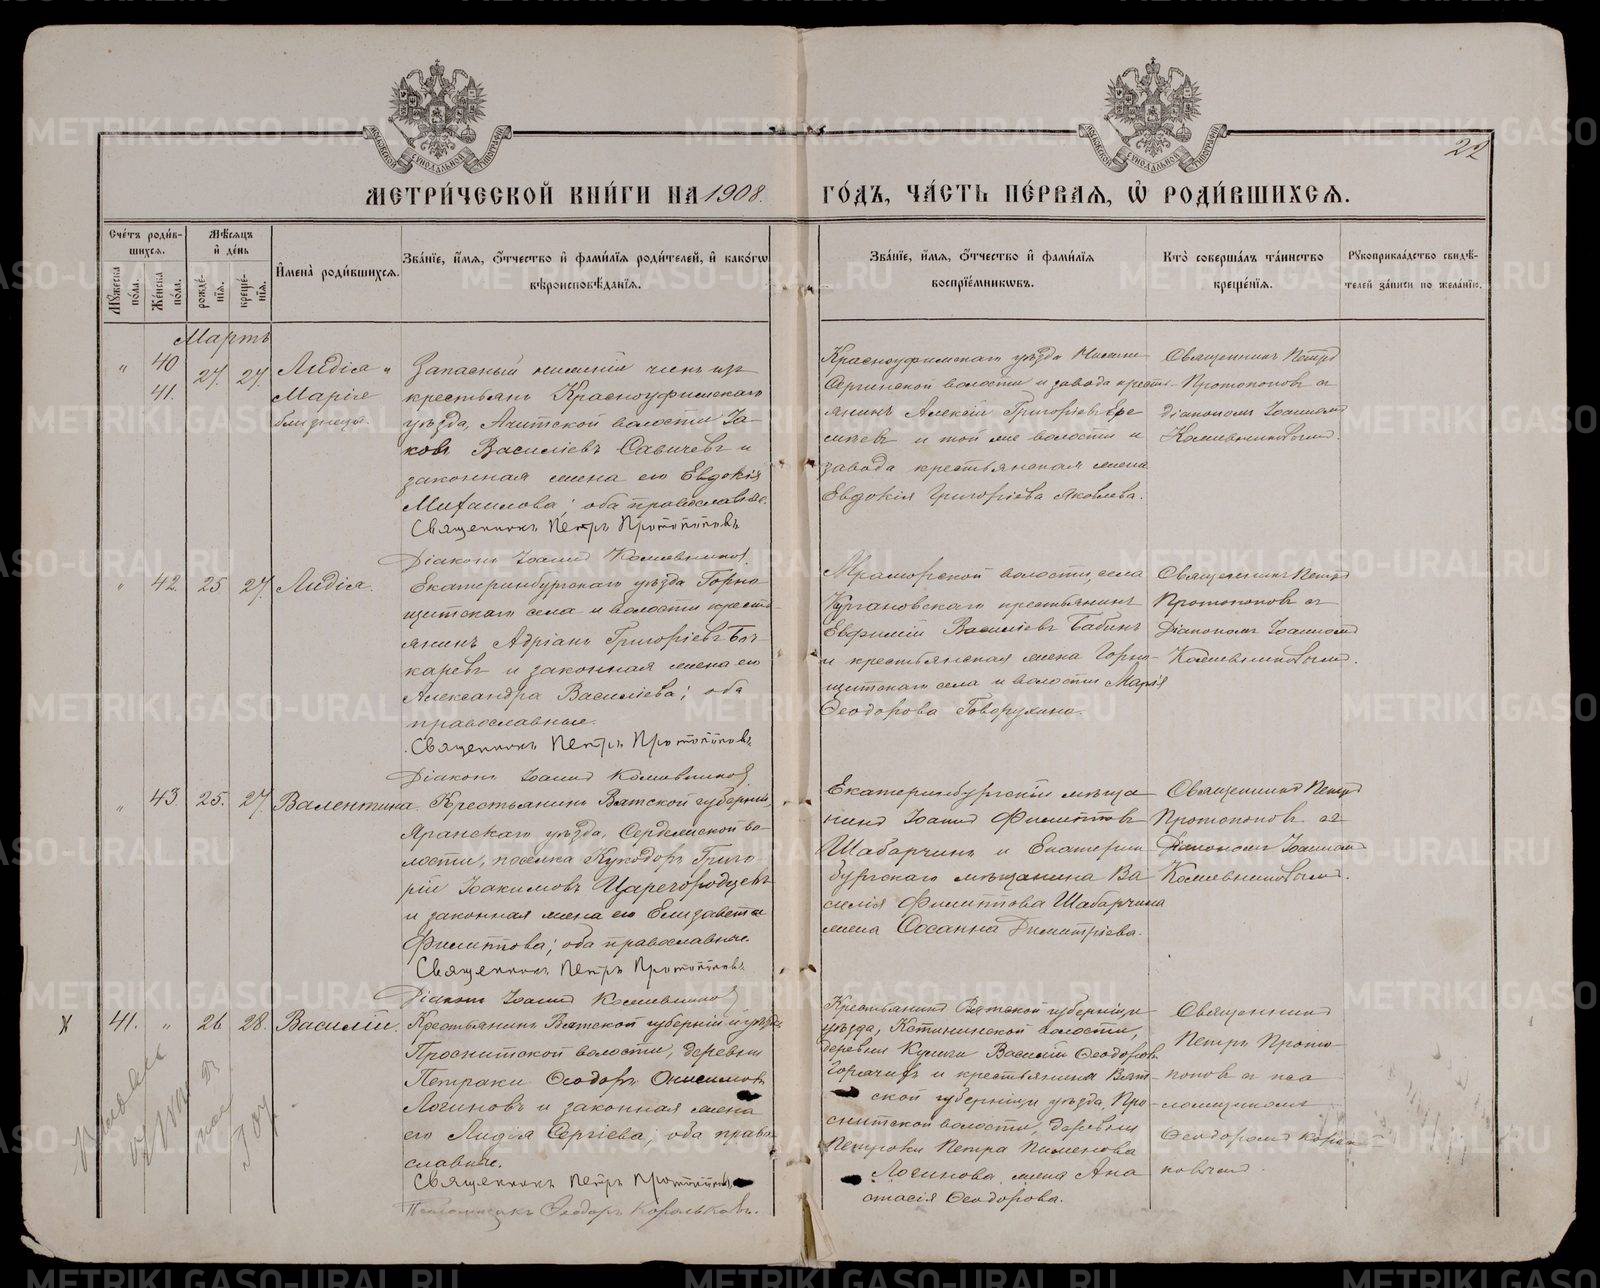 22
МЕТРИ́ЧЕСКОЙ КНИ́ГИ НА 1908.
ГО́ДЪ, ЧА́СТЬ ПЕ́РВАЯ, Ѡ҆ РОДИ́ВШИХСЯ.
Сче́тъ роди́вшихся.
Мꙋ́жеска по́ла.
Же́нска по́ла.
Мѣ́сяцъ и҆ де́нь
рожде́нїя.
креще́нїя.
И҆мена̀ роди́вшихся.
Зва́нїе, и҆́мя, ѻ҆́тчество и҆ фами́лїя роди́телей, и҆ како́гѡ
вѣроисповѣ́данїя.
Зва́нїе, и҆́мя, ѻ҆́тчество и҆ фами́лїя
воспрїе́мникѡвъ.
Кто̀ соверша́лъ та́инство
креще́нїя.
Рꙋкоприкла́дство свидѣ́-
телей за́писи по жела́нїю.
Мартъ
" 40 41. 27. 27. Лидія и
Марія
близнецы.
Запасный нижній чинъ изъ
крестьянъ Красноуфимскаго
уѣзда, Ачитской волости Іа-
ковъ Василіевъ Савичевъ и
законная жена его Евдокія
Михаилова; оба православные.
Священникъ Петръ Протопоповъ
Діаконъ Іоаннъ Кожевниковъ
Красноуфимскаго уѣзда Нижне
Сергинской волости и завода кресть-
янинъ Алексій Григоріевъ
и той же волости и
завода крестьянская жена
Евдокія Григоріева Яковлева.
Священникъ Петръ
Протопоповъ съ
діакономъ Іоанномъ
Кожевниковымъ.
" 42. 25 27. Лидія.
Екатеринбургскаго уѣзда Горно
щитскаго села и волости кресть-
янинъ Адріанъ Григоріевъ Боч-
каревъ и законная жена его
Александра Василіева; оба
православные.
Священникъ Петръ Протопоповъ
Діаконъ Іоаннъ Кожевниковъ
Мраморской волости, села
Кургановскаго крестьянинъ
Евфимій Василіевъ Бабинъ
и крестьянская жена Горно-
щитскаго села и волости Марія
Ѳеодорова Говорухина.
Священникъ Петръ
Протопоповъ съ
Діакономъ Іоанномъ
Кожевниковымъ.
" 43 25. 27. Валентина.
Крестьянинъ Вятской губерніи,
Яранскаго уѣзда, Сердежской во-
лости, поселка Кукодоръ Григо-
рій Іоакимовъ Царегородцевъ
и законная жена его Елизавета
Филиппова; оба православные.
Священникъ Петръ Протопоповъ
Діаконъ Іоаннъ Кожевниковъ
Екатеринбургскій мѣща
нинъ Іоаннъ Филипповъ
Шабарчинъ и Екатерин
бургскаго мѣщанина Ва
силія Филиппова Шабарчина
жена Сосанна Димитріева.
Священникъ Петръ
Протопоповъ съ
Діакономъ Іоанномъ
Кожевниковымъ.
х 41. " 26 28. Василій.
Крестьянинъ Вятской губерніи и уѣзда
Проснитской волости, деревни
Петраки Ѳеодоръ Онисимовъ
Логиновъ и законная жена
его Лидія Сергіева, оба право
славные.
Священникъ Петръ Протопоповъ
Псаломщикъ Ѳеодоръ Корольковъ.
Крестьянинъ Вятской губерніи
уѣзда, Кстининской волости,
деревни Кулиги Василій Ѳеодоровъ
Горлачевъ и крестьянина Вят-
ской губерніи уѣзда, Про-
снитской волости, деревни
Петроки Петра Пименова
Логинова жена Ана
стасія Ѳеодорова.
Священникъ
Петръ Прото-
поповъ съ пса
ломщикомъ
Ѳеодоромъ Король
ковымъ.
METRIKI.GASO-URAL.RU